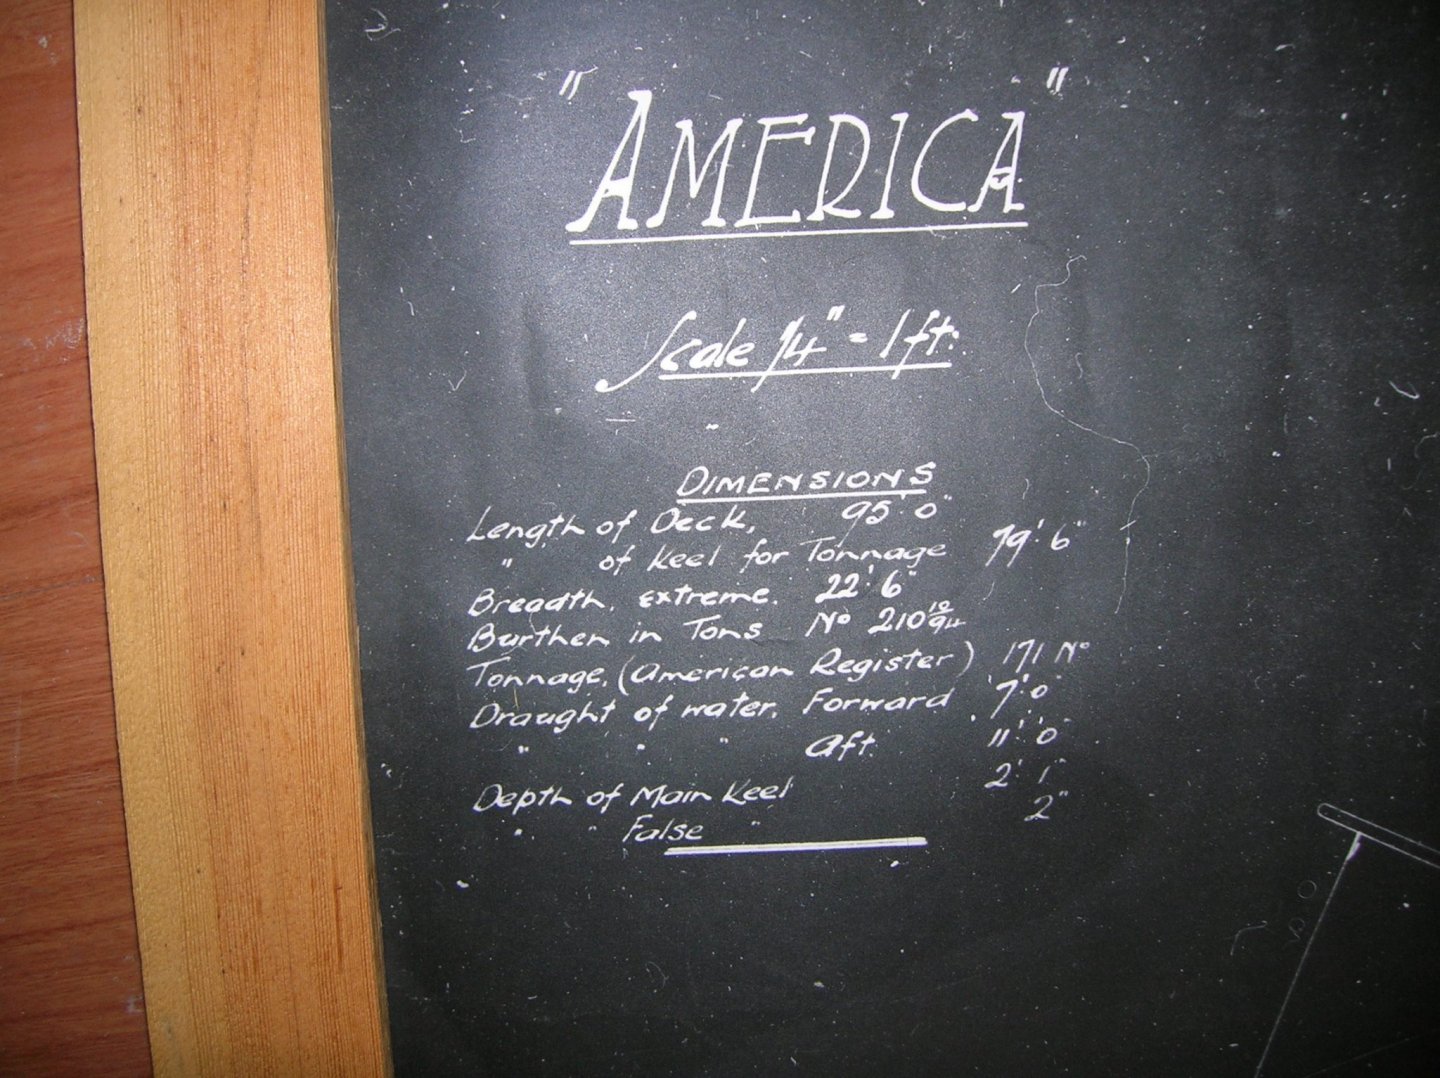 "AMERICA"
Scale 1/4" = 1 ft.
DIMENSIONS
Length of Deck, 95' 0"
" of Keel for Tonnage 79' 6"
Breadth, extreme. 22' 6"
Burthen in Tons No 210 10/94
Tonnage, (American Register) 171 No
Draught of water, Forward 7' 0"
" " " Aft. 11' 0"
Depth of Main Keel 2' 1"
" " False " 2"